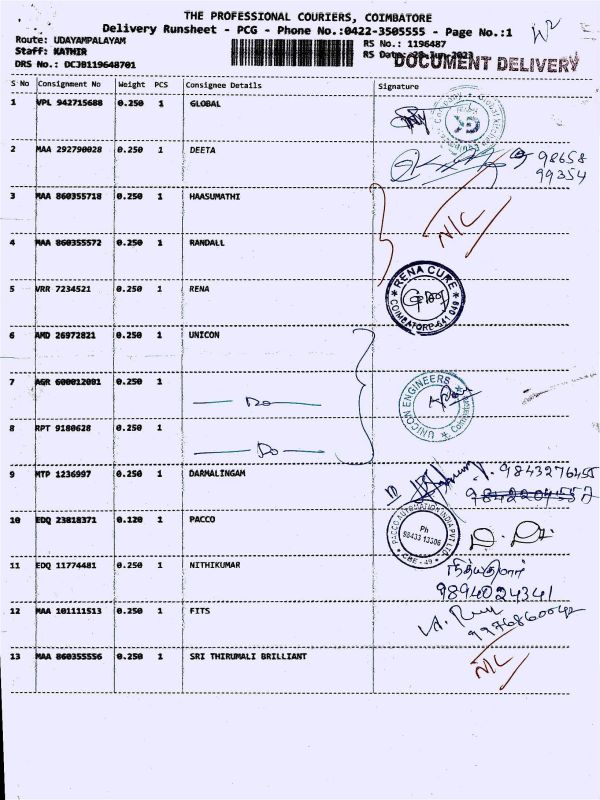 THE PROFESSIONAL COURIERS, COIMBATORE
Delivery Runsheet - PCG - Phone No.:0422-3505555 - Page No.:1
Route: UDAYAMPALAYAM
Staff: KATHIR
DRS No.: DCJB119648701
RS No.: 1196487
RS Date: 28-Jun-2023
DOCUMENT DELIVERY
S No Consignment No Weight PCS Consignee Details Signature
1 VPL 942715688 0.250 1 GLOBAL
2 MAA 292790028 0.250 1 DEETA 98658
99354
3 MAA 860355718 0.250 1 HAASUMATHI
N/C
4 MAA 860355572 0.250 1 RANDALL
5 VRR 7234521 0.250 1 RENA
RENA CURE
COIMBATORE-641 049
6 AMD 26972821 0.250 1 UNICON
7 AGR 600012081 0.250 1
Do
UNICON ENGINEERS
Coimbatore
8 RPT 9180628 0.250 1
Do
9 MTP 1236997 0.250 1 DARMALINGAM 9843276455
10 EDQ 23818371 0.120 1 PACCO
PACCO AUTOMATION INDIA PVT LTD
Ph
98433 13306
CBE - 49
11 EDQ 11774481 0.250 1 NITHIKUMAR
நித்யகுமார்
9894024341
12 MAA 101111513 0.250 1 FITS
13 MAA 860355556 0.250 1 SRI THIRUMALI BRILLIANT
N/C